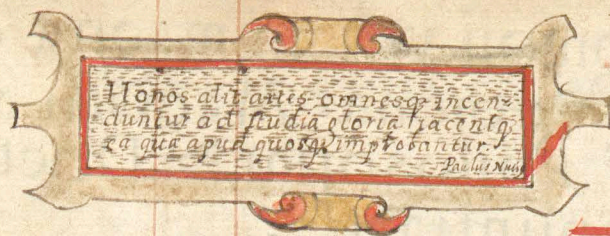 Honos alit artes omnesq; incen-
duntur ad studia gloria jacentq;
ea quæ apud quosq; improbantur.
Paulus